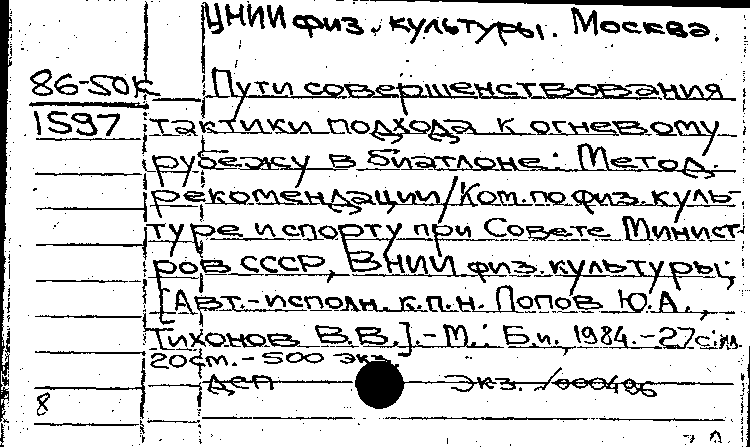 ЦНИИ физ. культуры. Москва.
86-50к Пути совершенствования
1597 тактики подхода к огневому
рубежу в биатлоне: Метод.
рекомендации/Ком. по физ. куль-
туре и спорту при Совете Минист-
ров СССР, ВНИИ физ. культуры;
[Авт.-исполн. к.п.н. Попов Ю.А.,
Тихонов В.В.].-М.: Б.и., 1984.-27с.: ил.
20см.-500 экз.
ДСП Экз. №000496
8